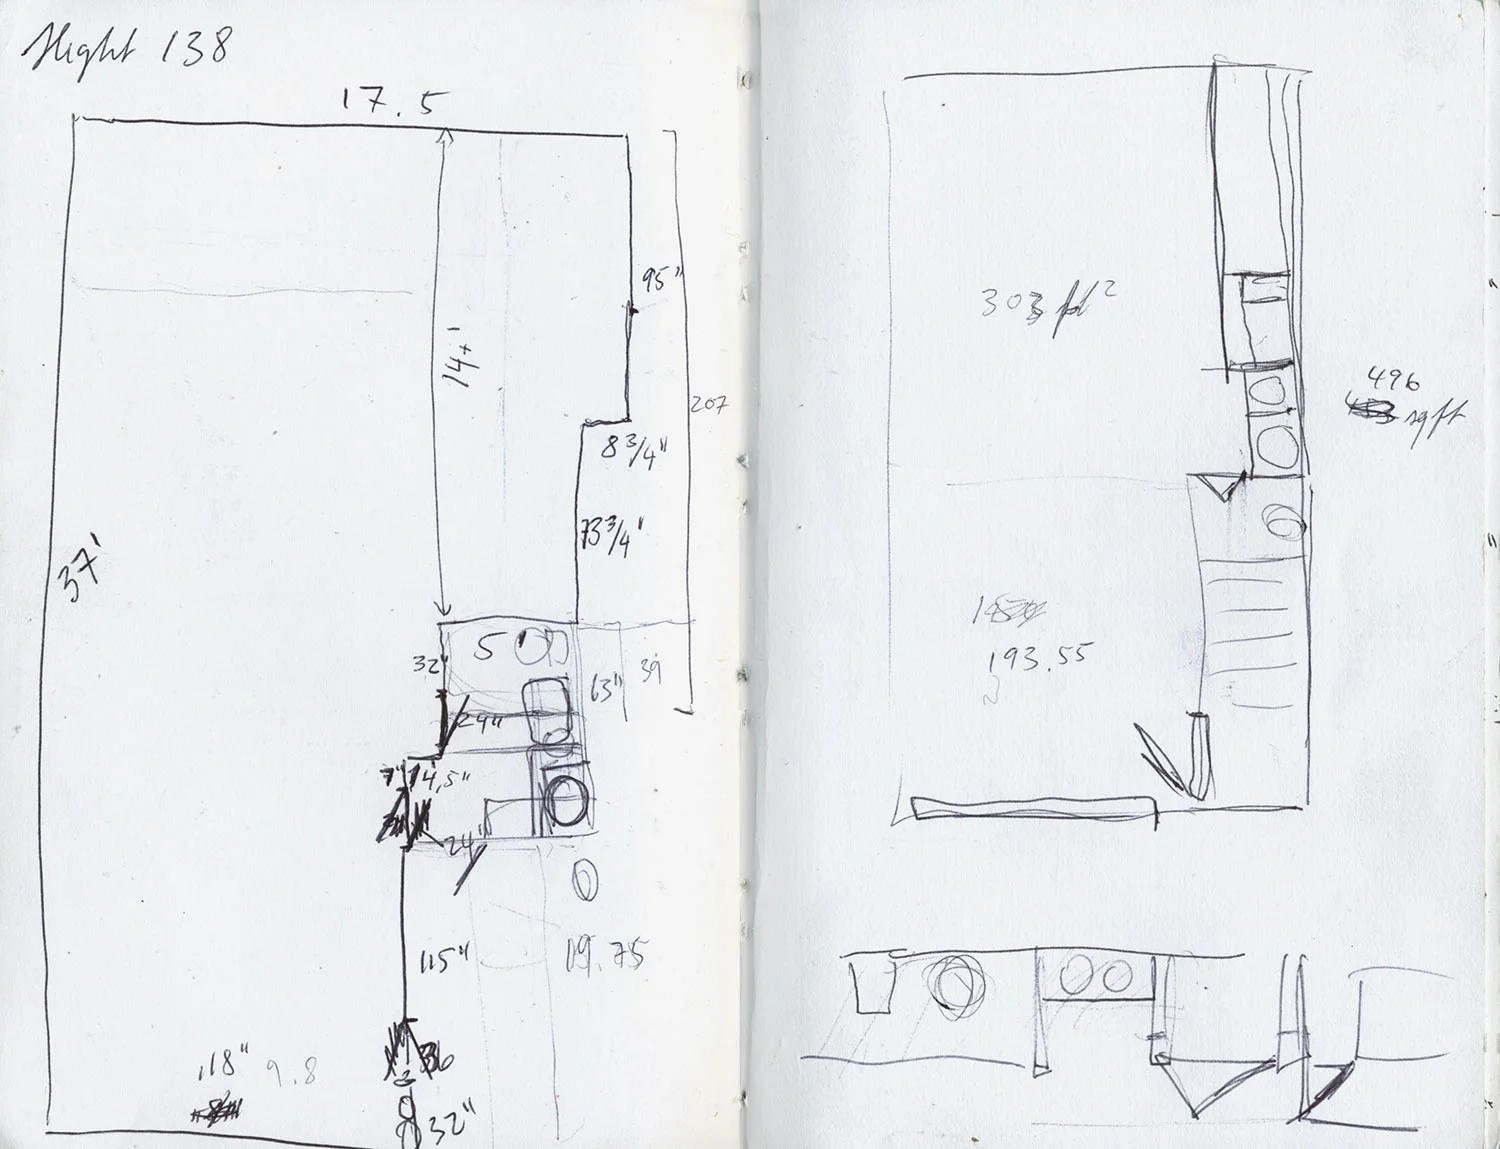 Hight 138
17.5
95"
14+'
207
8 3/4"
73 3/4"
37'
S
32"
63"
39
24"
7"
14,5"
24"
115"
19.75
118"
9.8
36
32"
303 ft²
496
sqft
193.55